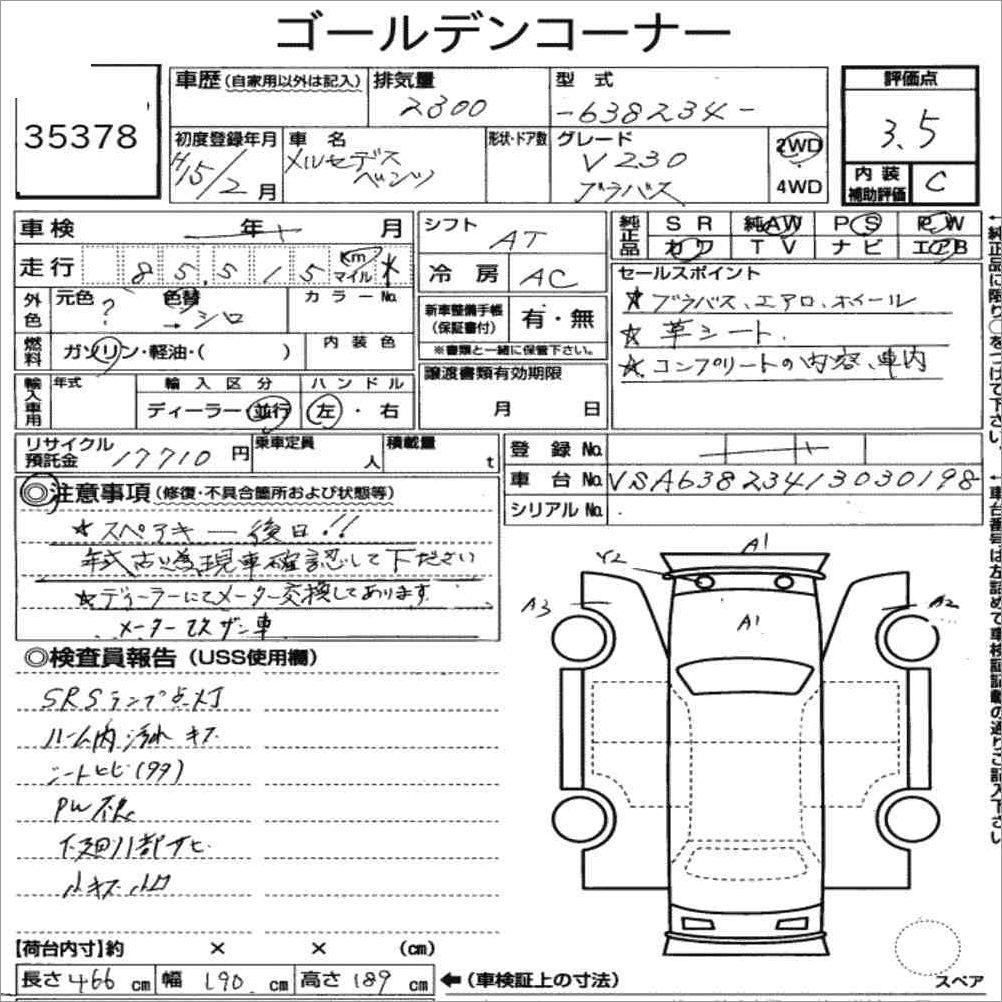 ゴールデンコーナー
35378
車歴 (自家用以外は記入)
排気量
2300
型式
-638234-
評価点
3.5
初度登録年月
H15/2月
車名
メルセデス
ベンツ
形状・ドア数
グレード
V230
ブラバス
2WD
4WD
内装
補助評価
C
車検 年 月
シフト
AT
純正品
SR 純AW PS PW
カワ TV ナビ エアB
走行 85,515 Km
マイル
冷房 AC
セールスポイント
★ブラバス、エアロ、ホイール
★革シート
★コンプリートの内容、車内
外色
元色 ?
色替
→シロ
カラーNo.
新車整備手帳
(保証書付)
有・無
※書類と一緒に保管下さい。
燃料
ガソリン・軽油・( )
内装色
輸入車用
年式
輸入区分
ディーラー・並行
ハンドル
左・右
譲渡書類有効期限
月 日
リサイクル
預託金 17710円
乗車定員
人
積載量
t
登録No.
車台No. VSA63823413030198
シリアルNo.
◎注意事項 (修復・不具合箇所および状態等)
★スペアキー 後日!!
年式古い為現車確認して下さい
★ディーラーにてメーター交換してあります
メーター改ザン車
◎検査員報告 (USS使用欄)
SRSランプ点灯
ルーム内汚れ キズ
シートヒビ(タタ)
PW不良
下廻り部サビ
小キズ 小凹
A1
Y2
A3
A1
A2
【荷台内寸】約 × × (cm)
長さ 466 cm 幅 190 cm 高さ 189 cm ←(車検証上の寸法)
スペア
←純正品に限り○をつけて下さい。
←車台番号は左詰めで車検証記載の通りご記入下さい